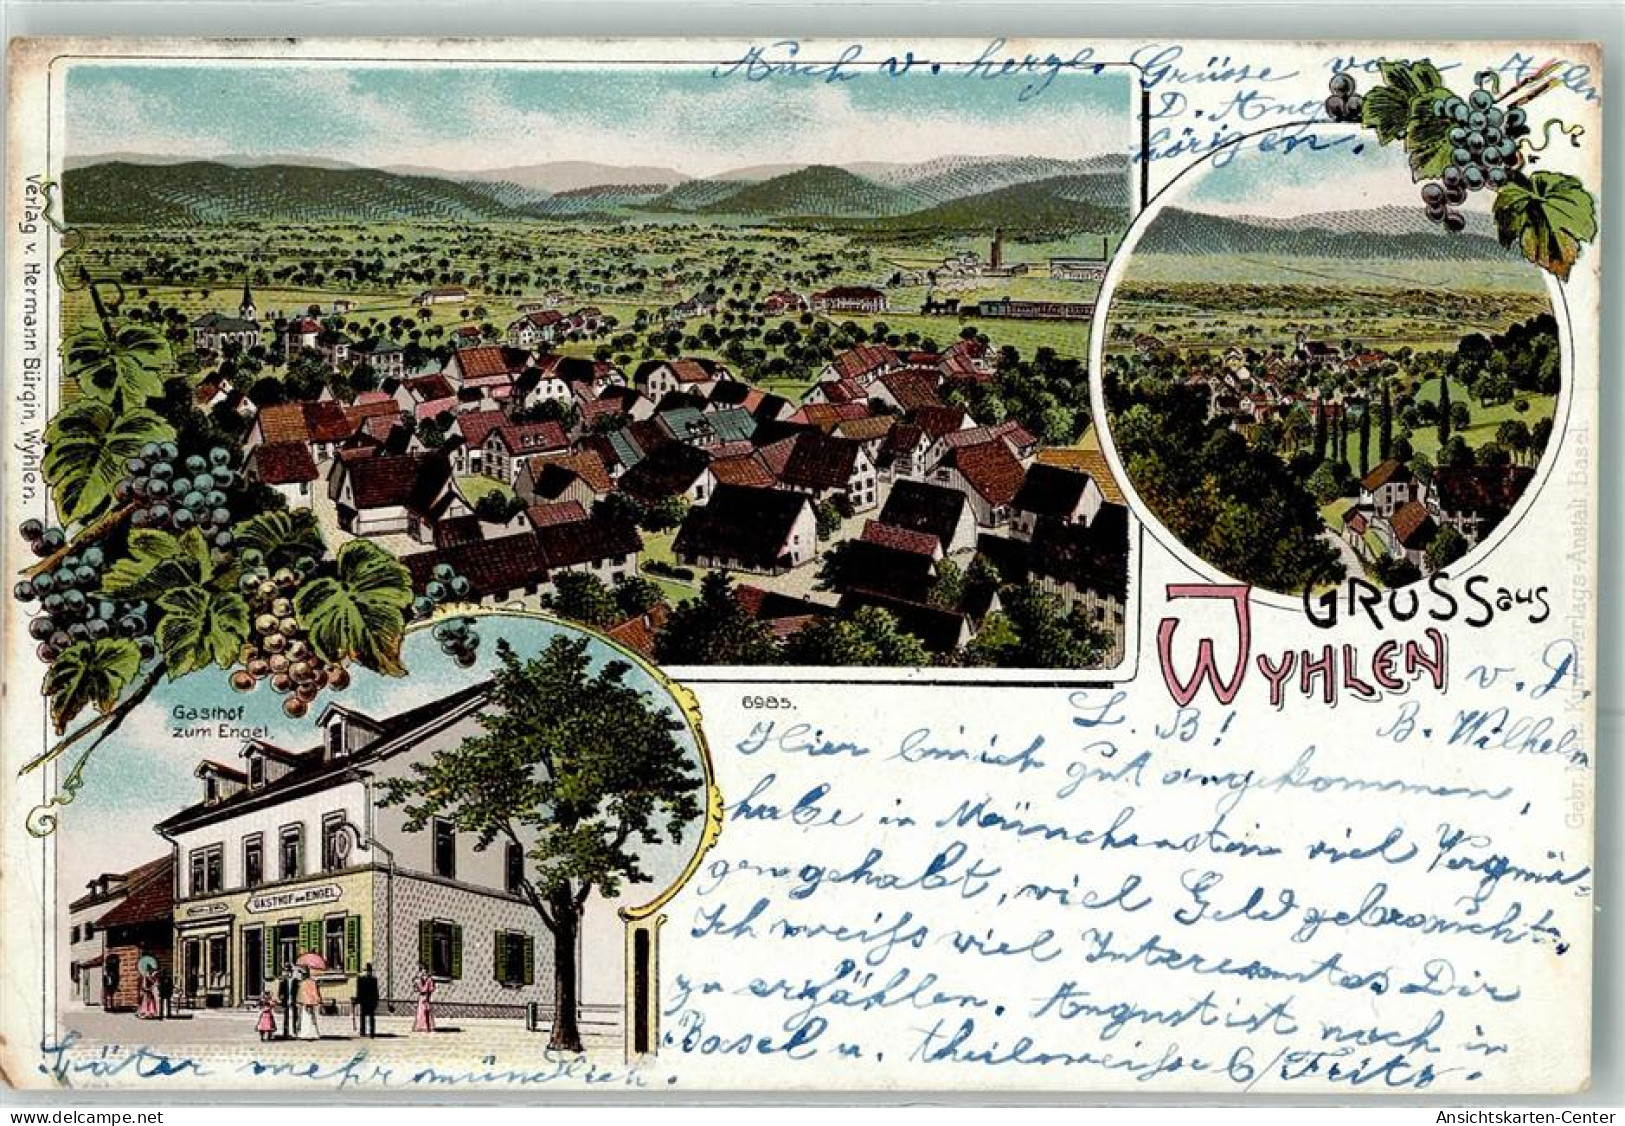 Auch v. herzl. Grüsse von
D. Ange
hörigen.
Verlag v. Hermann Bürgin, Wyhlen.
GRUSS aus
WYHLEN
Gasthof
zum Engel.
GASTHOF zum ENGEL
6985.
v. D.
L. B! B. Wilhelm
Hier bin ich gut angekommen,
habe in viel Vergnü
gen gehabt, viel Geld gebraucht.
Ich weiss viel Interessantes Dir
zu erzählen. August ist noch in
Basel u. theilweise b/ Fritz.
Später mehr mündlich.
Verlags-Anstalt Basel
Ansichtskarten-Center